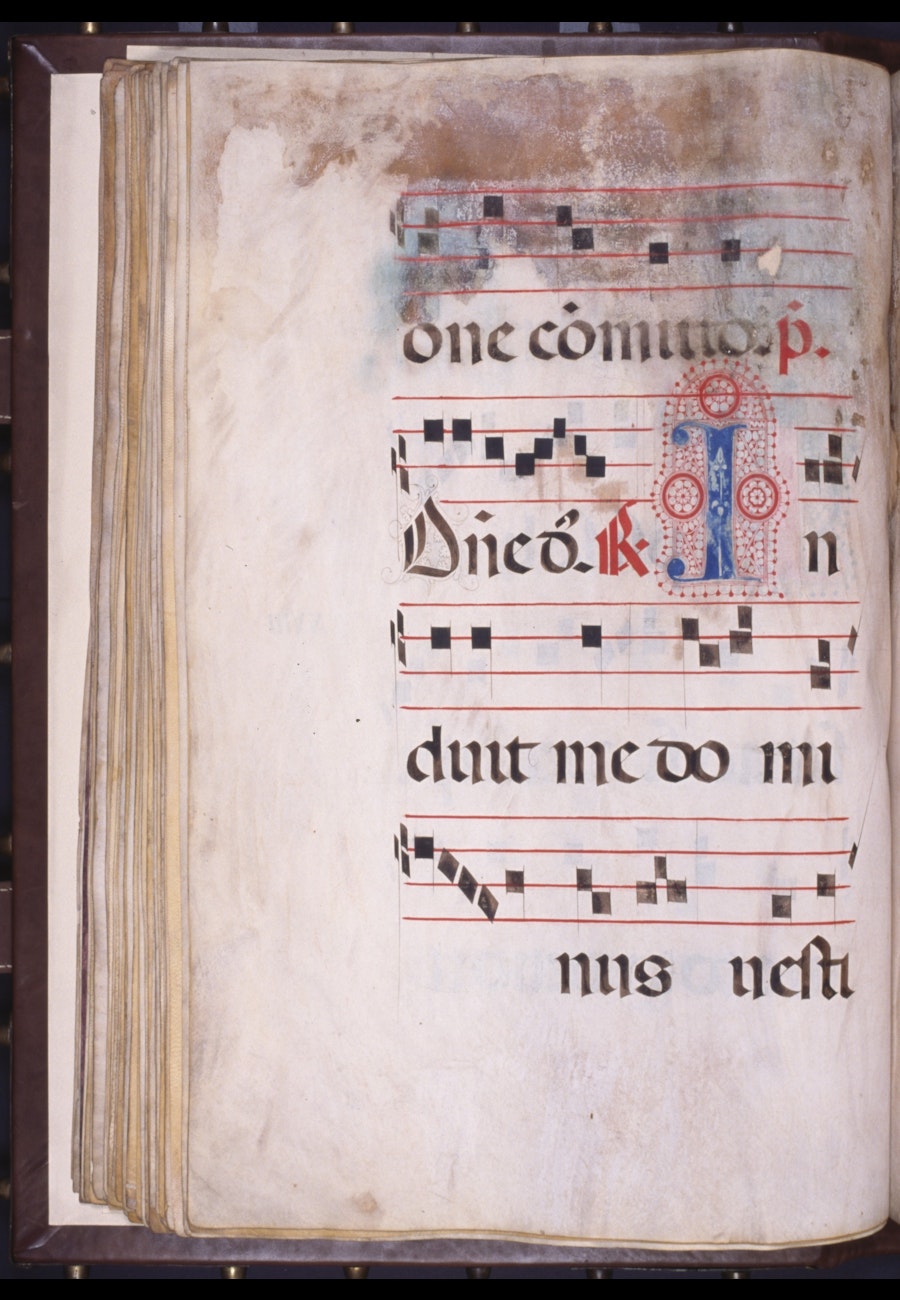 one cōmuto. p̄.
Dn̄e d̄. R. In
duit me do mi
nus uesti